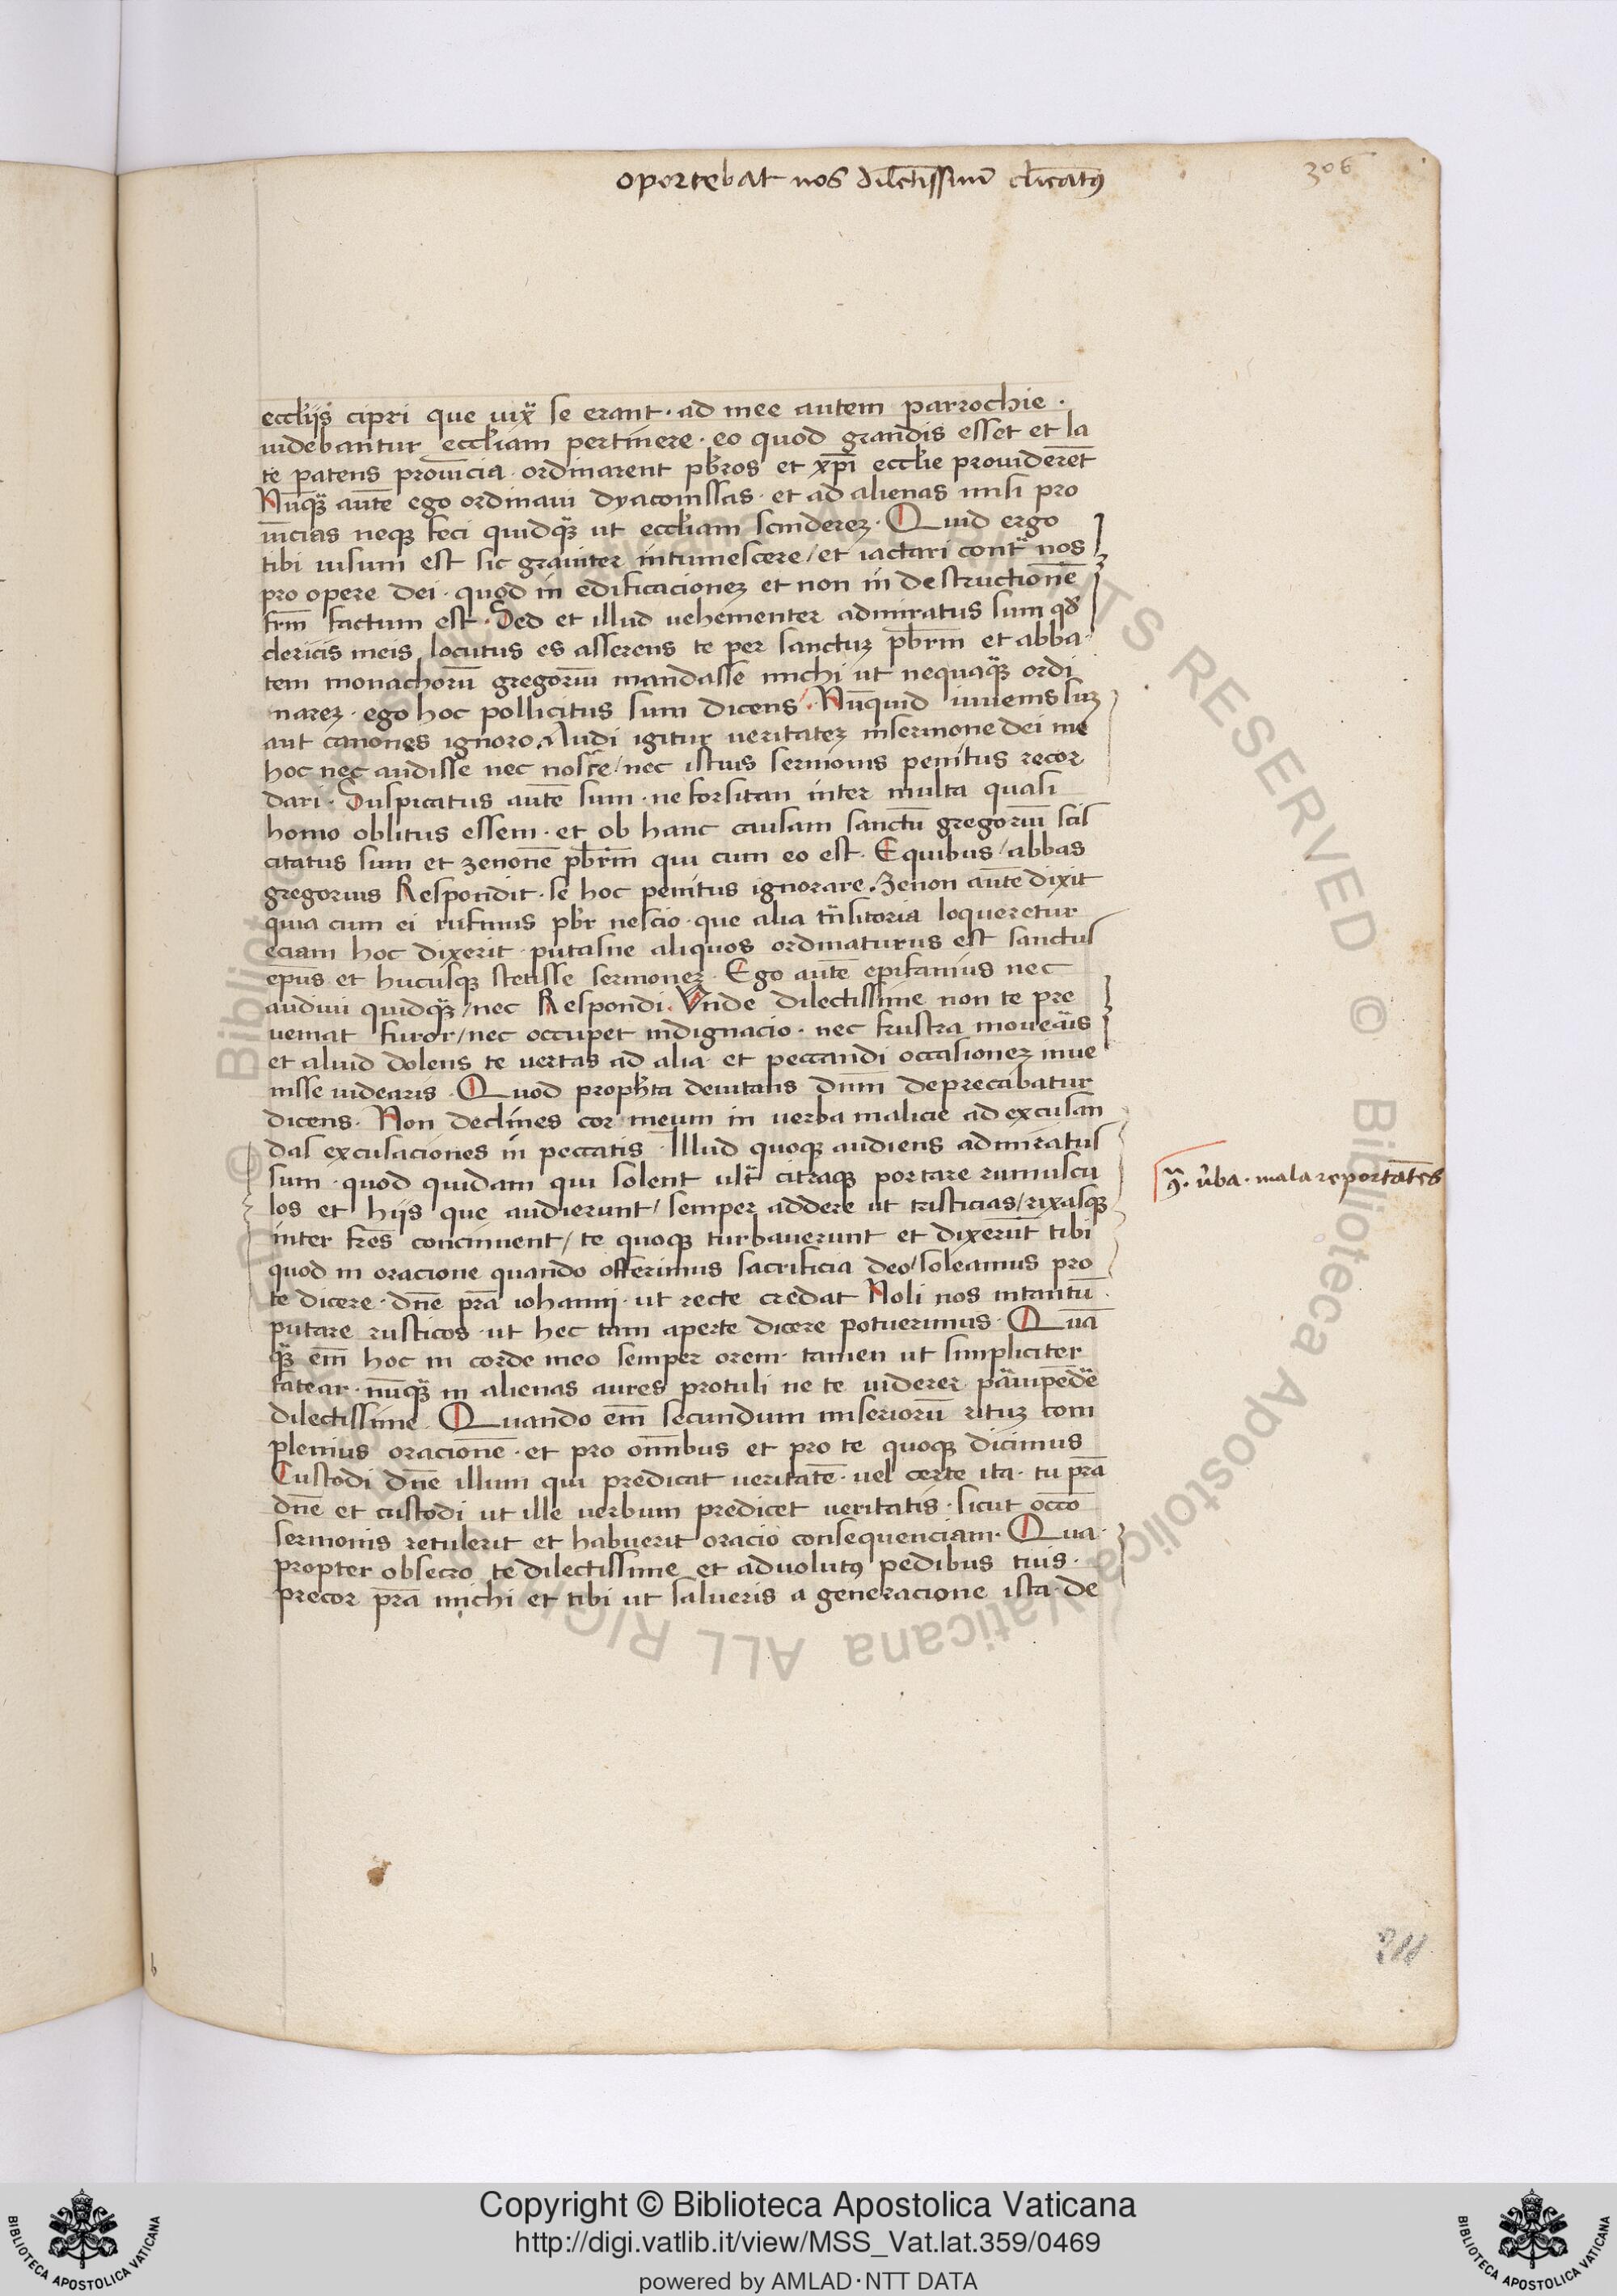 oportebat nos dilc̄tissim̄ cl̄icatꝰ
306
eccl̄ijs cipri que iuxᷓ se erant · ad mee autem parrochie ·
uidebantur eccl̄iam pertinere · eo quod grandis esset et la
te patens prouīcia · ordinarent pb̄ros et xp̄i eccl̄ie prouiderēt
Nūqᷓ autē ego ordinaui dyaconissas · et ad alienas misi pro
uīcias neqꝫ feci quidqᷓ ut eccl̄iam scindereꝫ · Quid ergo
tibi uisum est sic grauiter intumescere / et iactari contᷓ nos
pro opere dei · quod in edificacioneꝫ et non in destructionē
frm̄ factum est · Sed et illud uehementer admiratus sum qd̄
clericis meis locutus es asserens te per sanctuꝫ pb̄rm et abba
tem monachorū gregoriū mandasse michi ut nequaqᷓ ordi
nareꝫ · ego hoc pollicitus sum dicens / · Nūquid iuuenis suꝫ
aut canones ignoro · Audi igitur ueritateꝫ in sermone dei me
hoc nec audisse nec nosce / nec istius sermonis penitus recor
dari · Suspicatus autē sum · ne forsitan inter multa quasi
homo oblitus essem · et ob hanc causam sanctū gregoriū scis
citatus sum et zenonē pb̄rm qui cum eo est · E quibus / abbas
gregorius Respondit · se hoc penitus ignorare · Zenon autē dixit
quia cum ei rufinus pb̄r nescio · que alia tᷓnsitoria loqueretur
eciam hoc dixerit · putasne aliquos ordinaturus est sanctus
ep̄us et hucusqꝫ stetisse sermoneꝫ · Ego autē epifanius nec
audiui quidqᷓ / nec Respondi · Vnde dilectissime non te pre
ueniat furor / nec occupet indignacio · nec frustra moueaᷓis
et aliud dolens te uertas ad alia · et peccandi occasioneꝫ inue
nisse uidearis · Quod proph̄ta deuitans dn̄m deprecabatur
dicens · Non declines cor meum in uerba malicie ad excusan
das excusaciones in peccatis · Illud quoqꝫ audiens admiratus
sum · quod quidam qui solent ultᷓ citraqꝫ portare rumuscu
los et hijs que audierunt / semper addere ut tristicias / rixasqꝫ
inter fr̄es concinnent / te quoqꝫ turbauerunt et dixerūt tibi
quod in oracione quando offerimus sacrificia deo / soleamus pro
te dicere · dn̄e pr̄a iohanni · ut recte credat Noli nos intantū
putare rusticos · ut hec tam aperte dicere potuerimus · Quā
qᷓ em̄ hoc in corde meo semper orem · tamen ut simpliciter
fatear · nūqᷓ in alienas aures protuli ne te uiderer pᷓuipēdē
dilectissime · Quando em̄ secundum misteriorū rituꝫ com
plemus oracionē · et pro om̄ibus et pro te quoqꝫ dicimus
Custodi dn̄e illum qui predicat ueritatē · uel certe ita · tu pr̄a
dn̄e et custodi ut ille uerbum predicet ueritatis · sicut occō
sermonis retulerit et habuerit oracio consequenciam · Qua
propter obsecro te dilectissime et aduolutꝰ pedibus tuis ·
precor pr̄a michi et tibi ut salueris a generacione ista · de
ꝯᷓ · ūba · mala reportātes
Copyright © Biblioteca Apostolica Vaticana
http://digi.vatlib.it/view/MSS_Vat.lat.359/0469
powered by AMLAD·NTT DATA
BIBLIOTECA APOSTOLICA VATICANA
BIBLIOTECA APOSTOLICA VATICANA